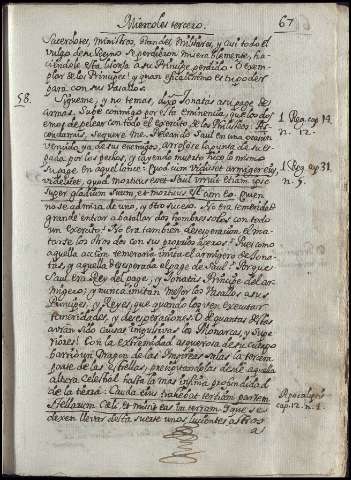 Miercoles tercero.
67
Sacerdotes, ministros, Grandes, Militares, y casi todo el
vulgo de su Reyno se perdieron miserablemente, ha-
ciendole esta lisonja a su Principe perdido. O exem-
plar de los Principes! y quan eficacissimo es tu poder
para con sus Vasallos.
58.
Sigueme, y no temas, dixo Jonatas a su page de
armas, Sube conmigo por esta eminencia que los dos
emos de pelear con todo el exercito de los Philisteos: As-
cendamus, sequere me. Peleando Saul en una ocasion
vencido ya de sus enemigos, arrojose la punta de su es-
pada por los pechos, y cayendo muerto hico lo mismo
su page en aquel lance: Quod cum vidisset armiger eius,
videlicet, quod mortuus esset Saul irruit etiam ipse
super gladium suum, et mortuus est cum eo. Quien
no se admira de uno, y otro suceso. No era temeridad
grande entrar a batallar dos hombres solos con todo
un exercito? No era tambien desesperacion el ma-
tarse los otros dos con sus propios aceros? Pues como
aquella accion temeraria imita el armigero de Jona-
tas, y aquella desesperada el page de Saul? Porque
Saul era Rey del page, y Jonatas Principe del ar-
migero; y nunca imitan mejor los Vasallos a sus
Principes, y Reyes, que quando los ven executar
temeridades, y desesperaciones. O de quantas de estas
avran sido causas impulsivas los Monarcas, y Supe-
riores! Con la extremidad asquerosa de su cuerpo
barrio un Dragon de las Impireas salas la tercera
parte de las estrellas, precipitandolas desde aquella
altura Celestial hasta la mas infima profundidad
de la tierra: Cauda eius trahebat tertiam partem
Stellarum Cæli, et misit eas in terram. Y que se
dexen llevar de esta suerte unos lucientes astros
a
1 Reg. cap. 14.
n. 12.
1 Reg. cap. 31.
n. 5.
Apocalipsis
cap. 12. n. 4.